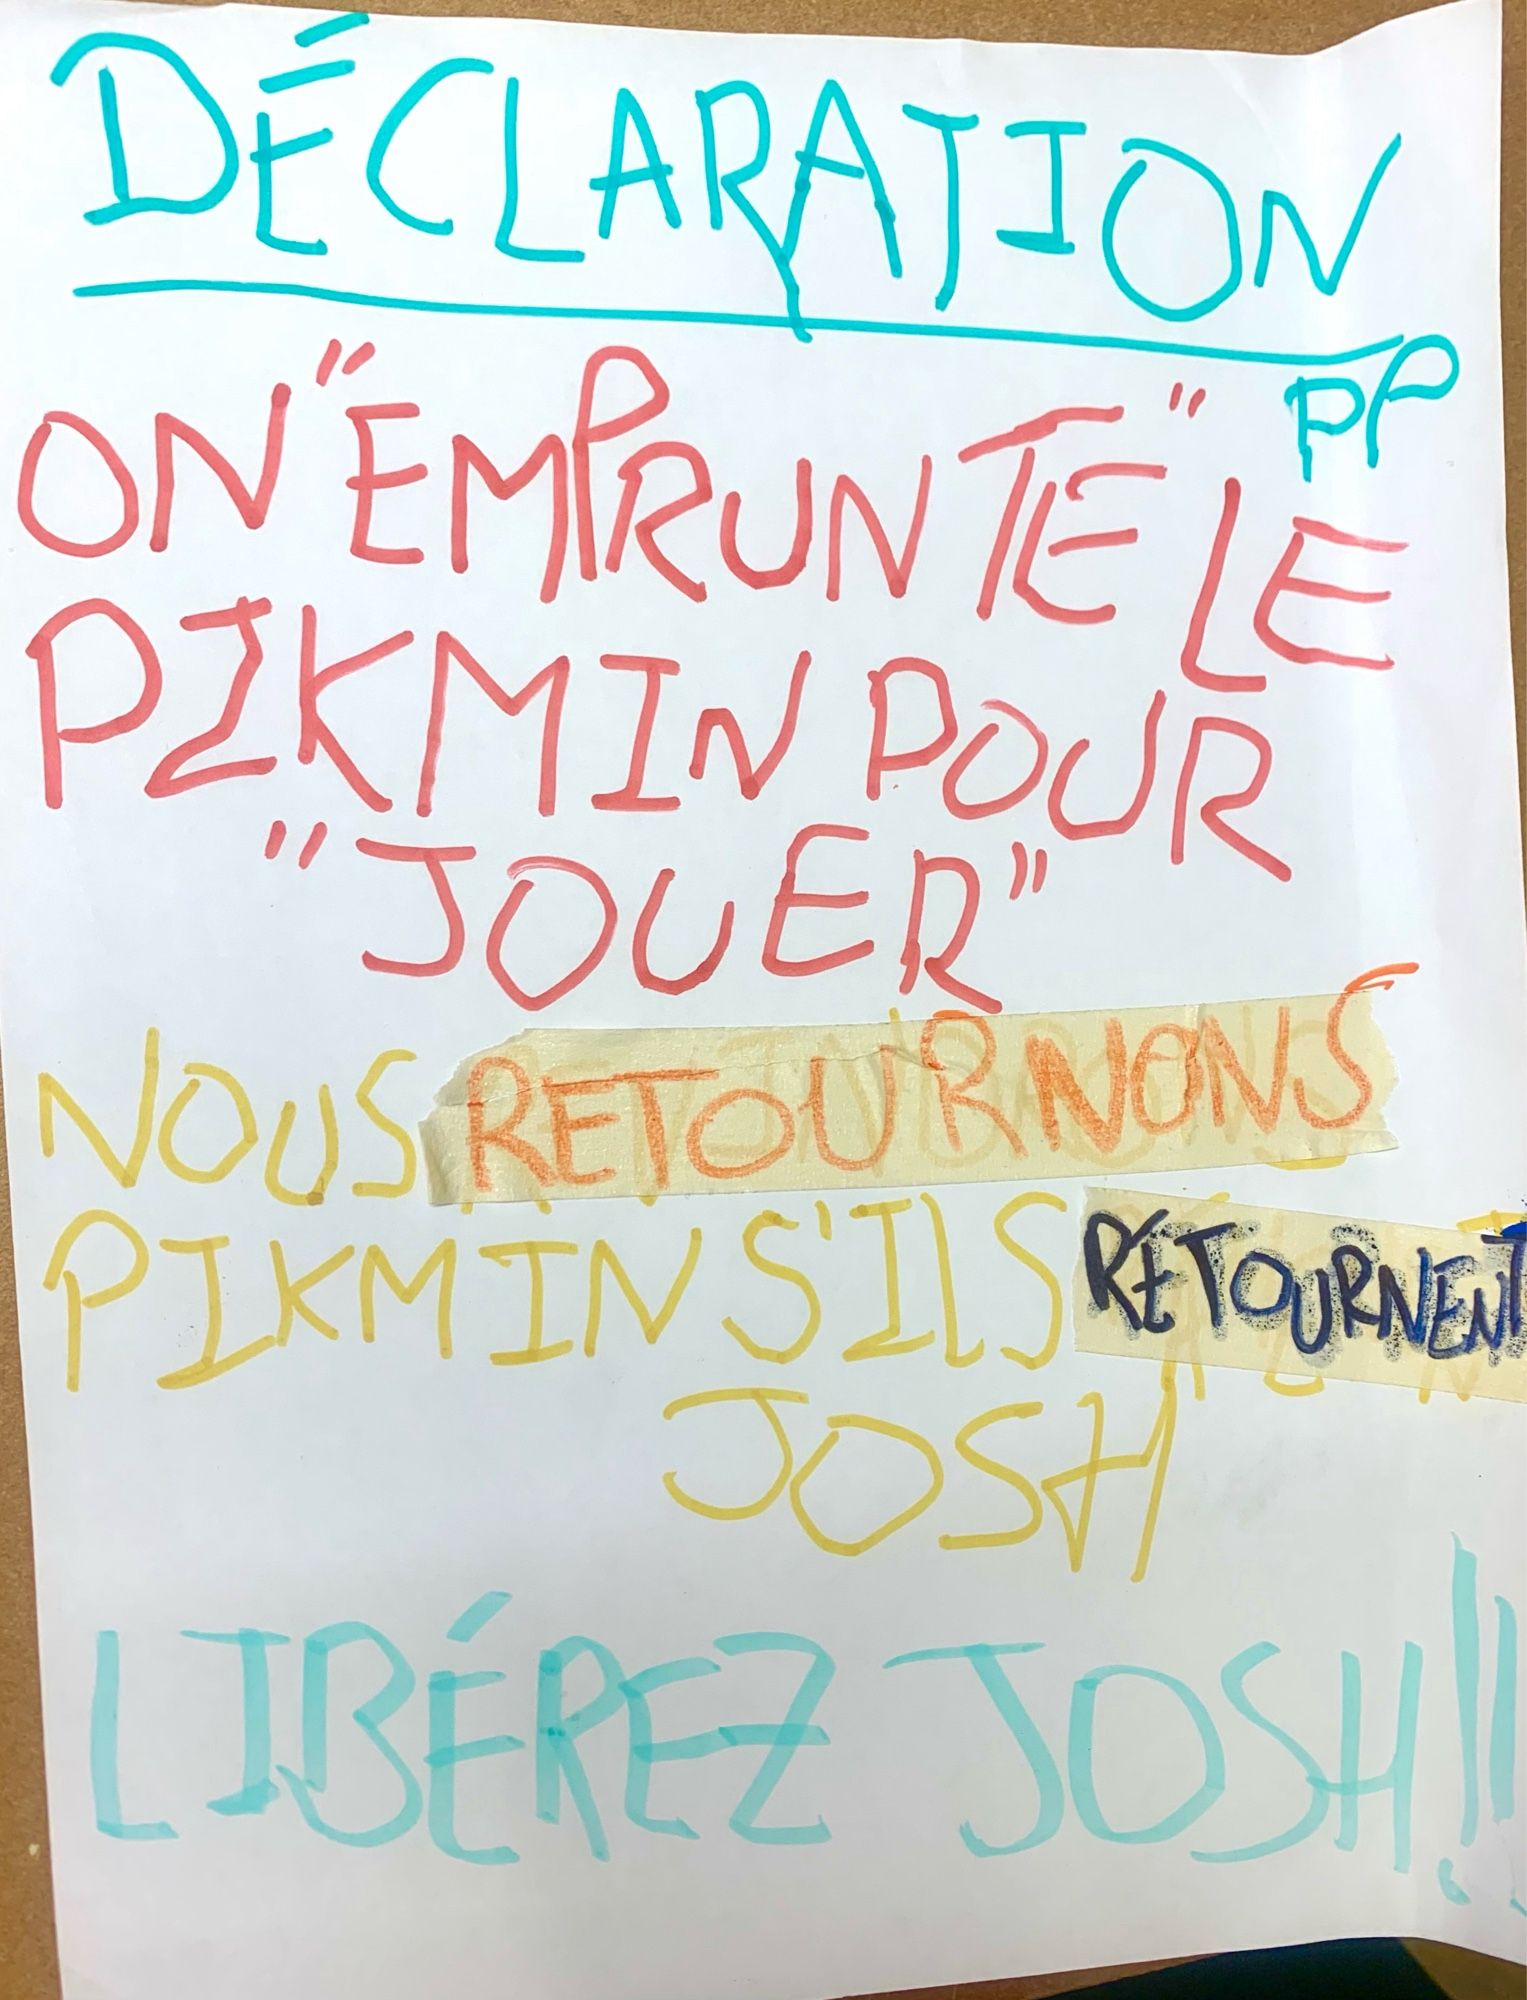 DÉCLARATION
PP
ON "EMPRUNTE" LE
PIKMIN POUR
"JOUER"
NOUS RETOURNONS
PIKMIN S'ILS RETOURNENT
JOSH
LIBÉREZ JOSH!!